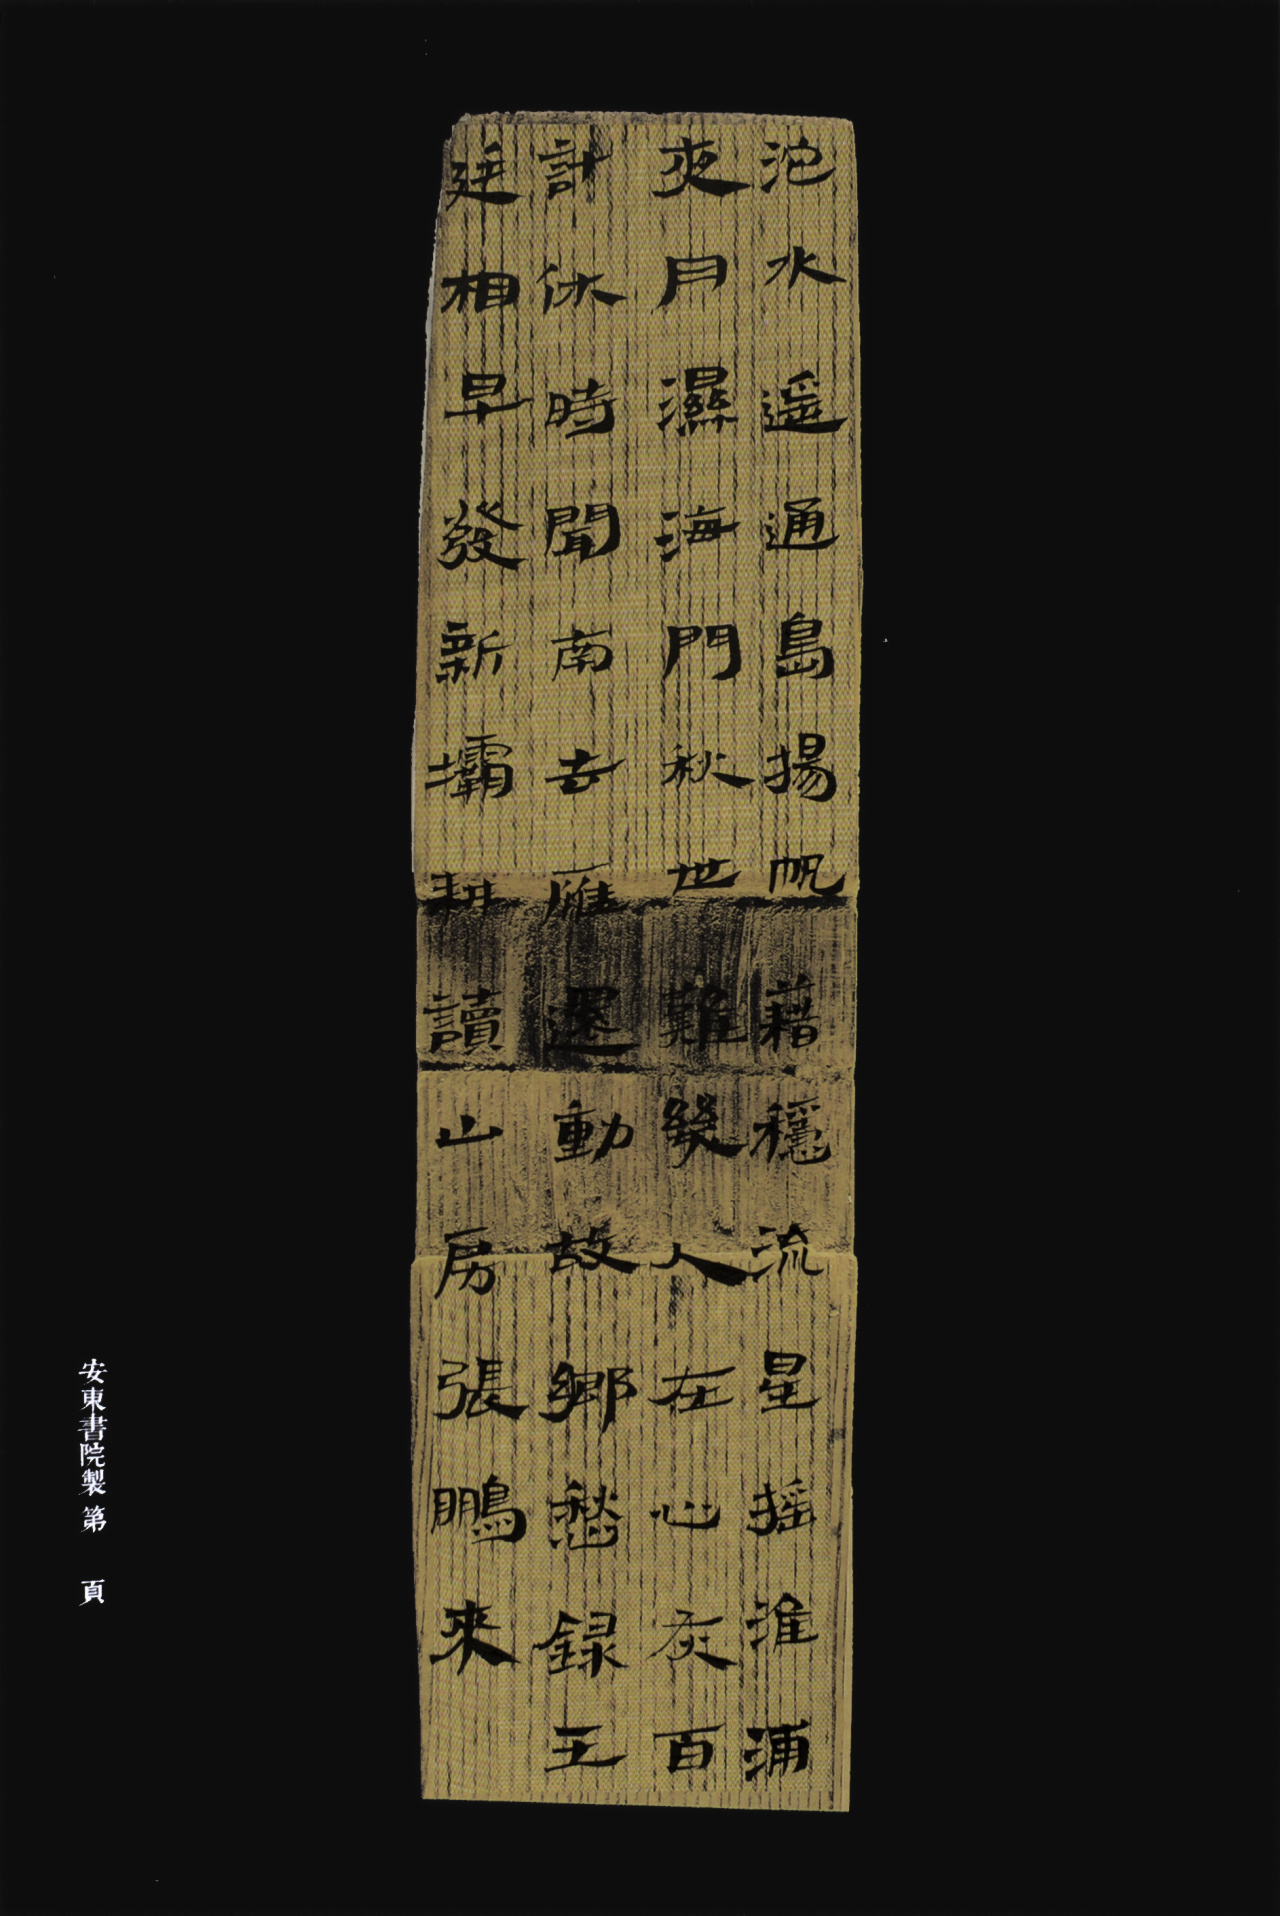 沱水遥通島揚帆藉穩流星摇淮浦
夾月濕海門秋世難發人在心灰百
計休時聞南去雁還動故鄉愁録王
廷相早發新壩耕讀山房張鵬來
安東書院製 第 頁